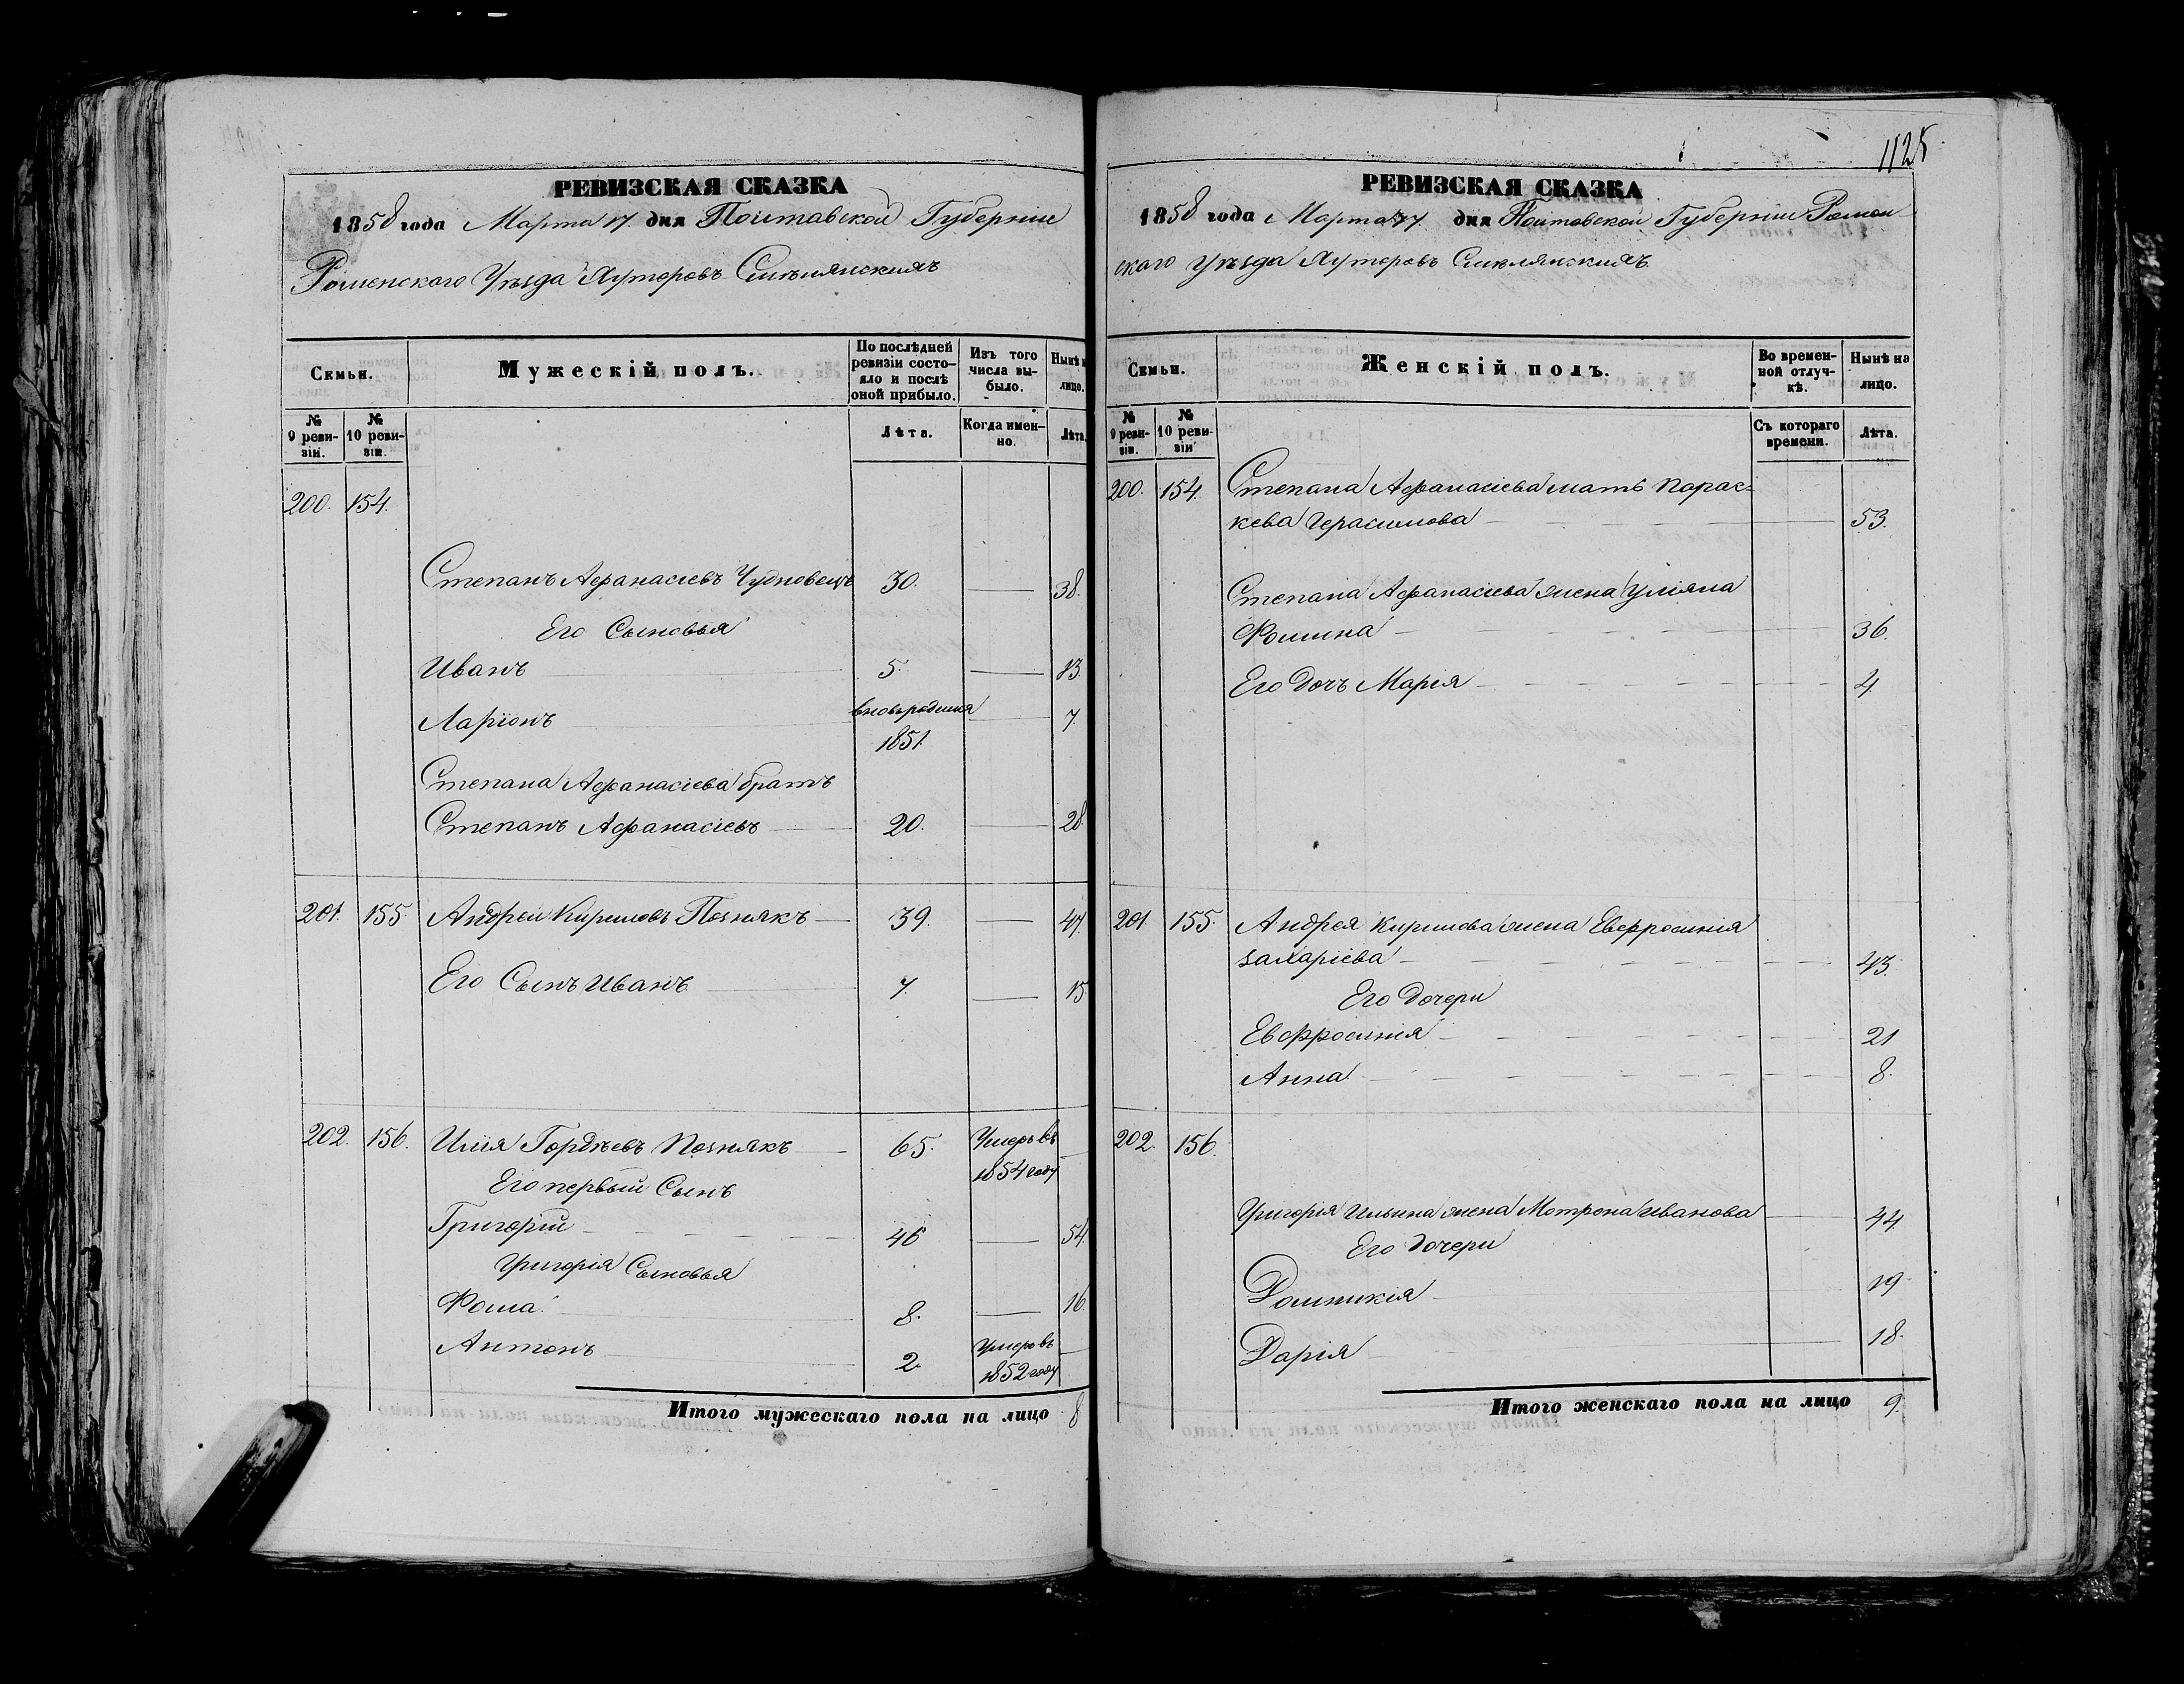 РЕВИЗСКАЯ СКАЗКА
1858 года Марта 17. дня Полтавской Губерніи
Роменскаго Уѣзда Хуторовъ Смѣлянскихъ
Семьи.
Мужескій полъ.
По послѣдней ревизіи состояло и послѣ оной прибыло.
Изъ того числа выбыло.
Нынѣ на лицо.
№ 9 ревизіи.
№ 10 ревизіи.
Лѣта.
Когда именно.
Лѣта.
200. 154.
Степанъ Афанасіевъ Чудновецъ 30. 38.
Его Сыновья
Иванъ 5. 13.
Ларіонъ вновьродился 7.
1851.
Степана Афанасіева братъ
Степанъ Афанасіевъ 20. 28.
201. 155. Андрей Кириловъ Познякъ 39. 47.
Его Сынъ Иванъ 7. 15
202. 156. Илія Гордѣевъ Познякъ 65. Умеръ въ
Его первый Сынъ 1854 году
Григорій 46 54.
Григорія Сыновья
Фома 8. 16.
Антонъ 2. Умеръ въ
1852 году
Итого мужескаго пола на лицо 8
1125
РЕВИЗСКАЯ СКАЗКА
1858 года Марта 17. дня Полтавской Губерніи Ромен
скаго Уѣзда Хуторовъ Смѣлянскихъ.
Семьи.
Женскій полъ.
Во временной отлучкѣ.
Нынѣ на лицо.
№ 9 ревизіи.
№ 10 ревизіи
Съ котораго времени.
Лѣта.
200. 154. Степана Афанасіева мать Парас-
кева Герасимова 53.
Степана Афанасіева жена Уліяна
Фомина 36.
Его дочь Марія 4.
201. 155. Андрея Кирилова жена Евфросинія
Захаріева 43.
Его дочери
Евфросинія 21
Анна 8.
202. 156.
Григорія Ильина жена Мотрона Иванова 44.
Его дочери
Домникія 19
Дарія 18.
Итого женскаго пола на лицо 9.